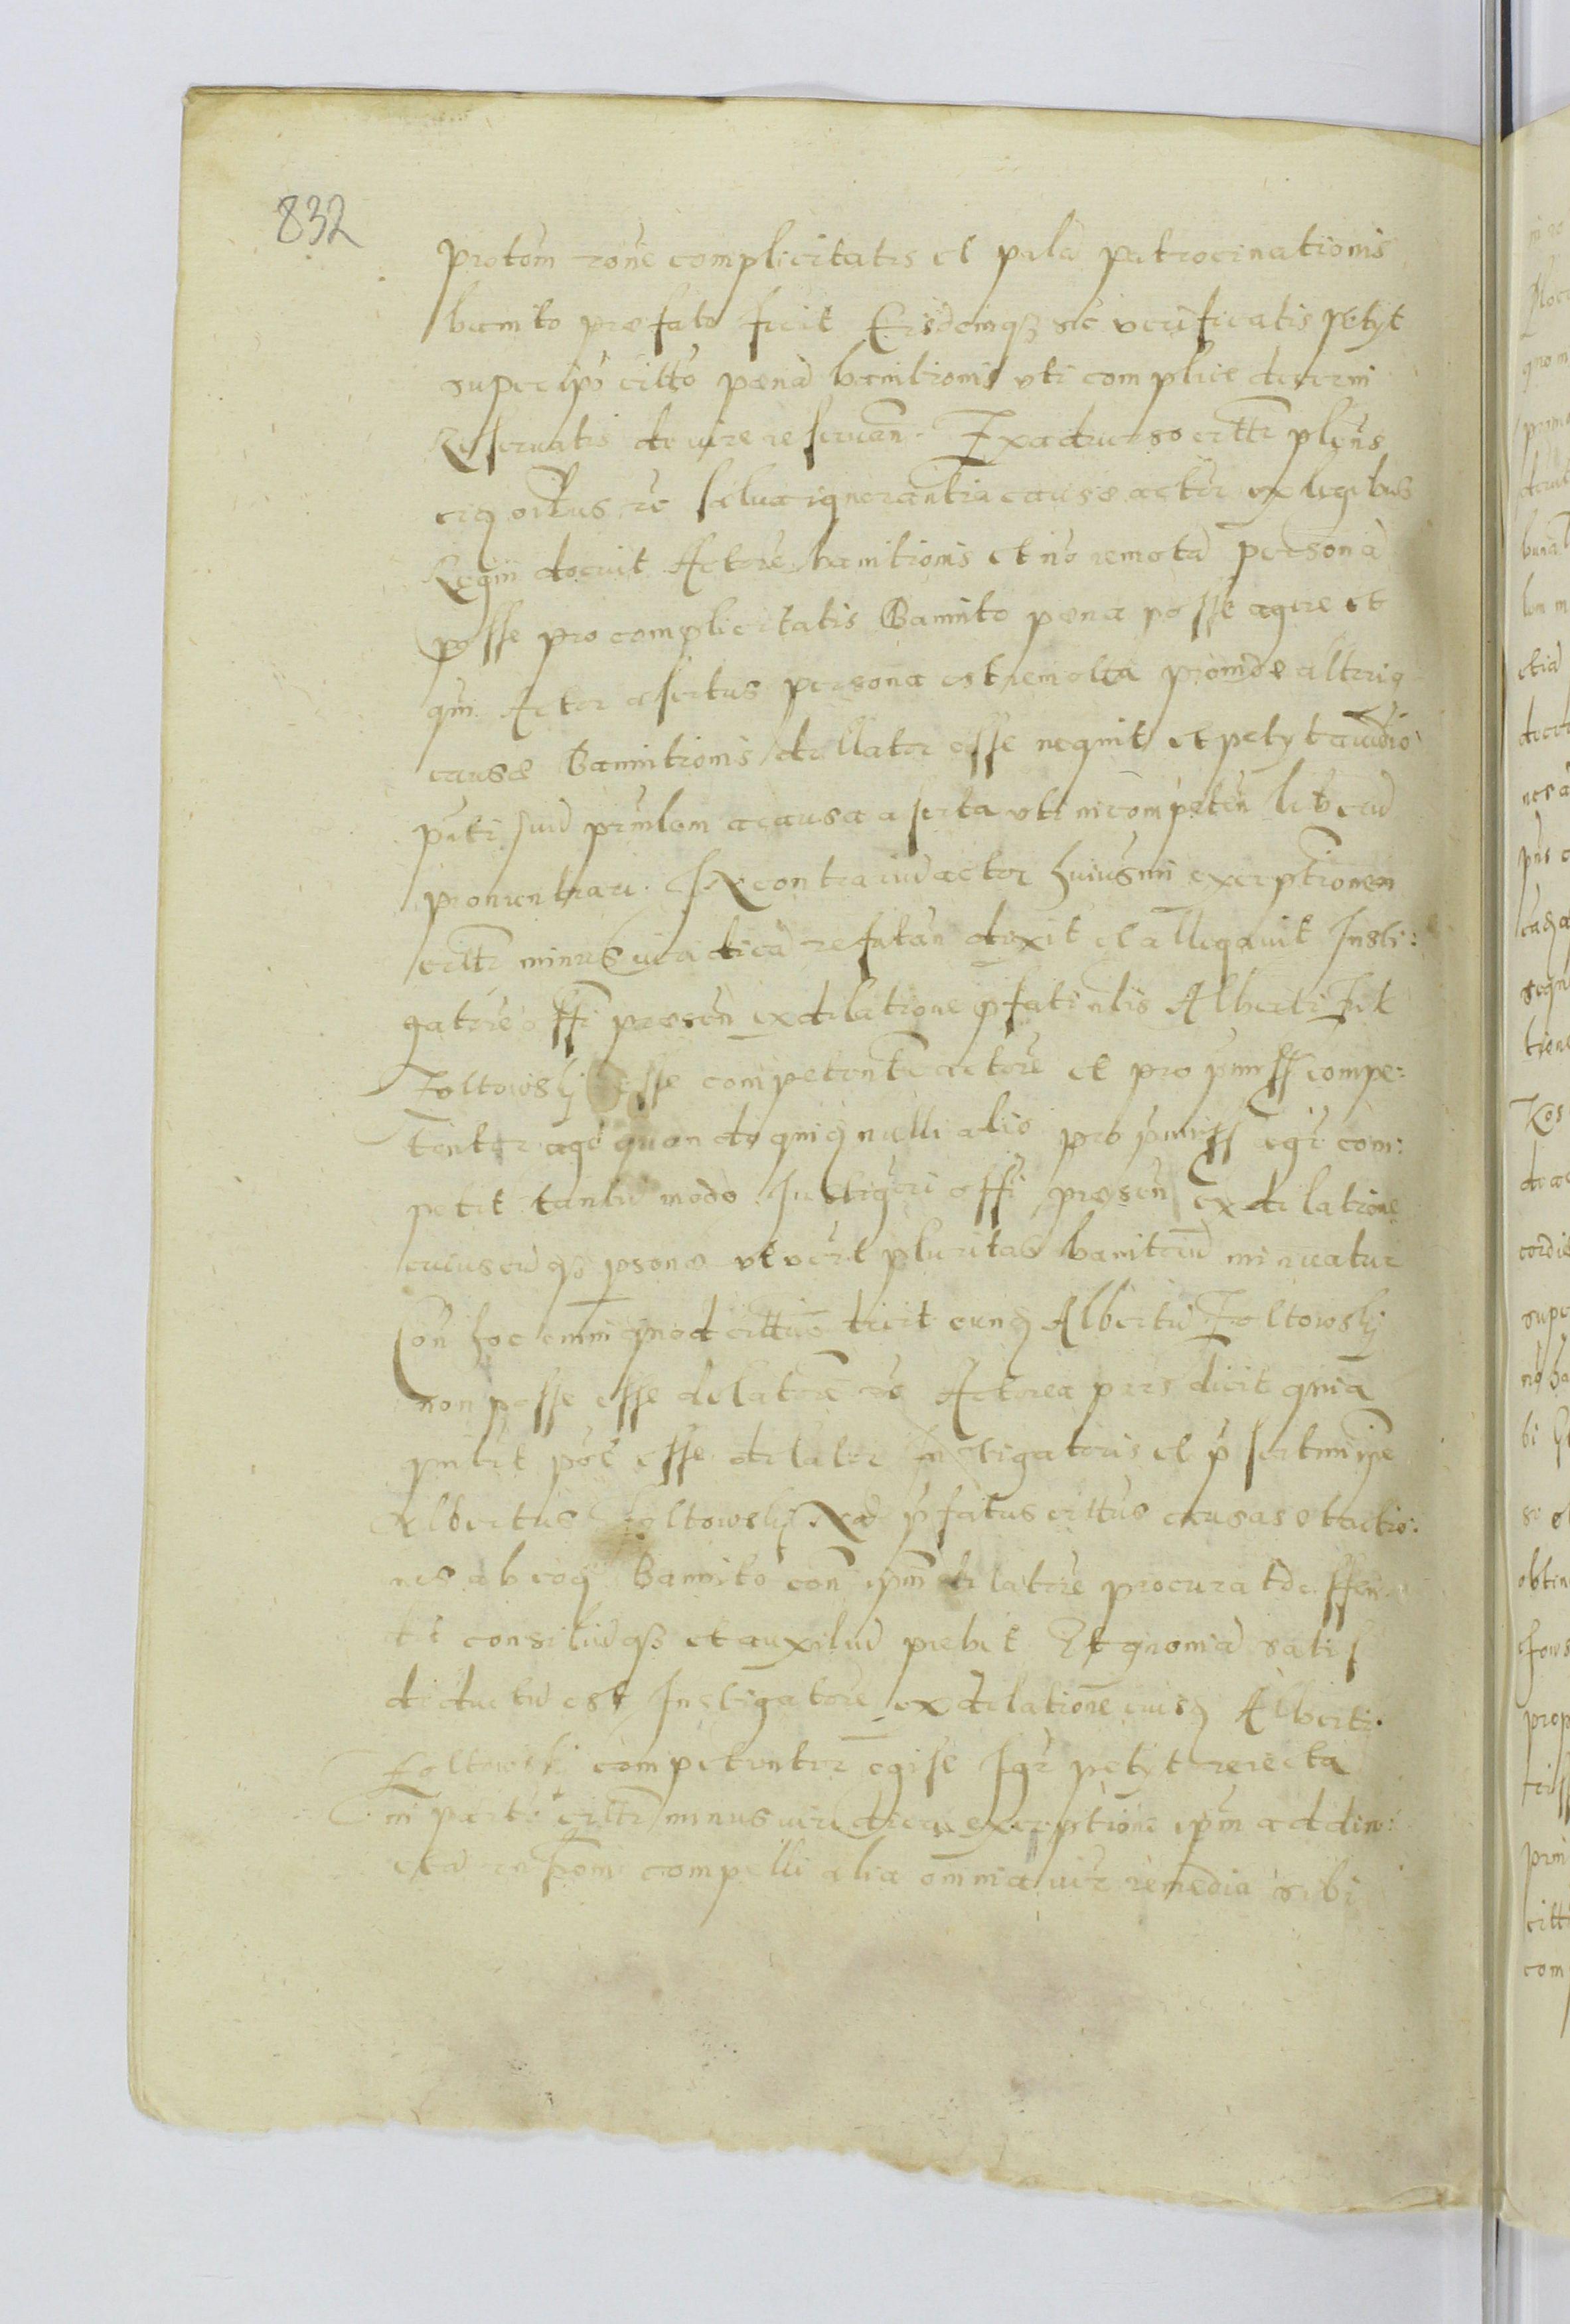 832
protom rone complicitatis et pala patrocinationis
banito præfato fecit Eisdemqz sic verificatis petyt
super ipso citto pæna banitionis uti complice decerni
Reservatis de iure reservan. Ex adverso citti plens
eiq salva ignorantia causæ actor ex legibus
Regni docuit Actore banitionis et no remota persona
posse pro complicitatis Bannito pæna posse agere et
qui Actor asertus persona est remota proinde alteriq
causæ Bannitionis dellator esse nequit et petyt a iudicio
parte sua prinlem a causa aserta uti incompeten libera
pronuntiari. Ex contra iud actor huiusmi exceptionem
citti minus iuridica refutan dixit et allegavit Insti:
gatore offi præsen ex delatione pfati nlis Alberti
Zoltowskj esse competente actore et pro pmiss compe:
tenter age quando quiq nulli alio pro pmiss agere com:
petit tantu modo Instigri offi præsen ex delatione
cuiuscuqz psonæ ut vert pluritas banitoru minuatur
Con hoc enim quod cittus dicit eunq Albertu Zoltowskj
non posse esse delatore re Actorea pars dicit quia
quilibet pot esse delator Instigatoris et p sertim ipse
Albertus Zoltowskj Nam pfatus cittus causas et actio:
nes ab eoq Bannito con ipm delatore procurat deffen
dit consiliuqz et auxiliu prebet Et quonia satis
deductu est Instigatore ex delatione eiusq Alberti
Zoltowskj competenter egisse Igr petyt reiecta
in parte citti minus iuridica exceptione ipm ad din:
cta compelli alia omnia iur remedia sibi